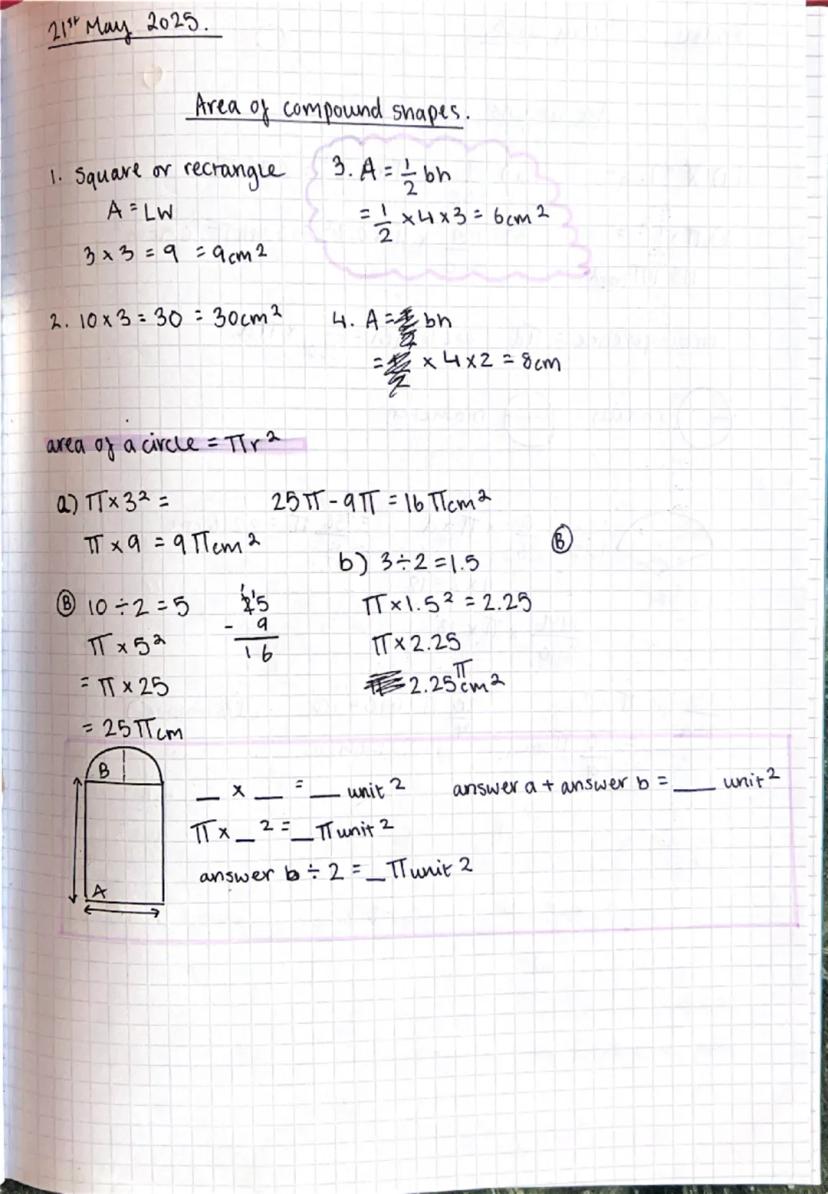 21st May 2025.
Area of compound shapes.
1. Square or rectangle
A = LW
3 x 3 = 9 = 9cm2
3. A = 1/2 bh
= 1/2 x 4 x 3 = 6cm2
2. 10 x 3 = 30 = 30cm2
4. A = bh
= x 4 x 2 = 8cm
area of a circle = πr2
a) π x 32 =
π x 9 = 9πcm2
25π - 9π = 16πcm2
B
B 10 ÷ 2 = 5
π x 52
= π x 25
= 25πcm
25
- 9
16
b) 3 ÷ 2 = 1.5
π x 1.52 = 2.25
π x 2.25
2.25πcm2
B
A
_ x _ = _ unit2
π x _2 = _π unit2
answer b ÷ 2 = _π unit2
answer a + answer b = _ unit2